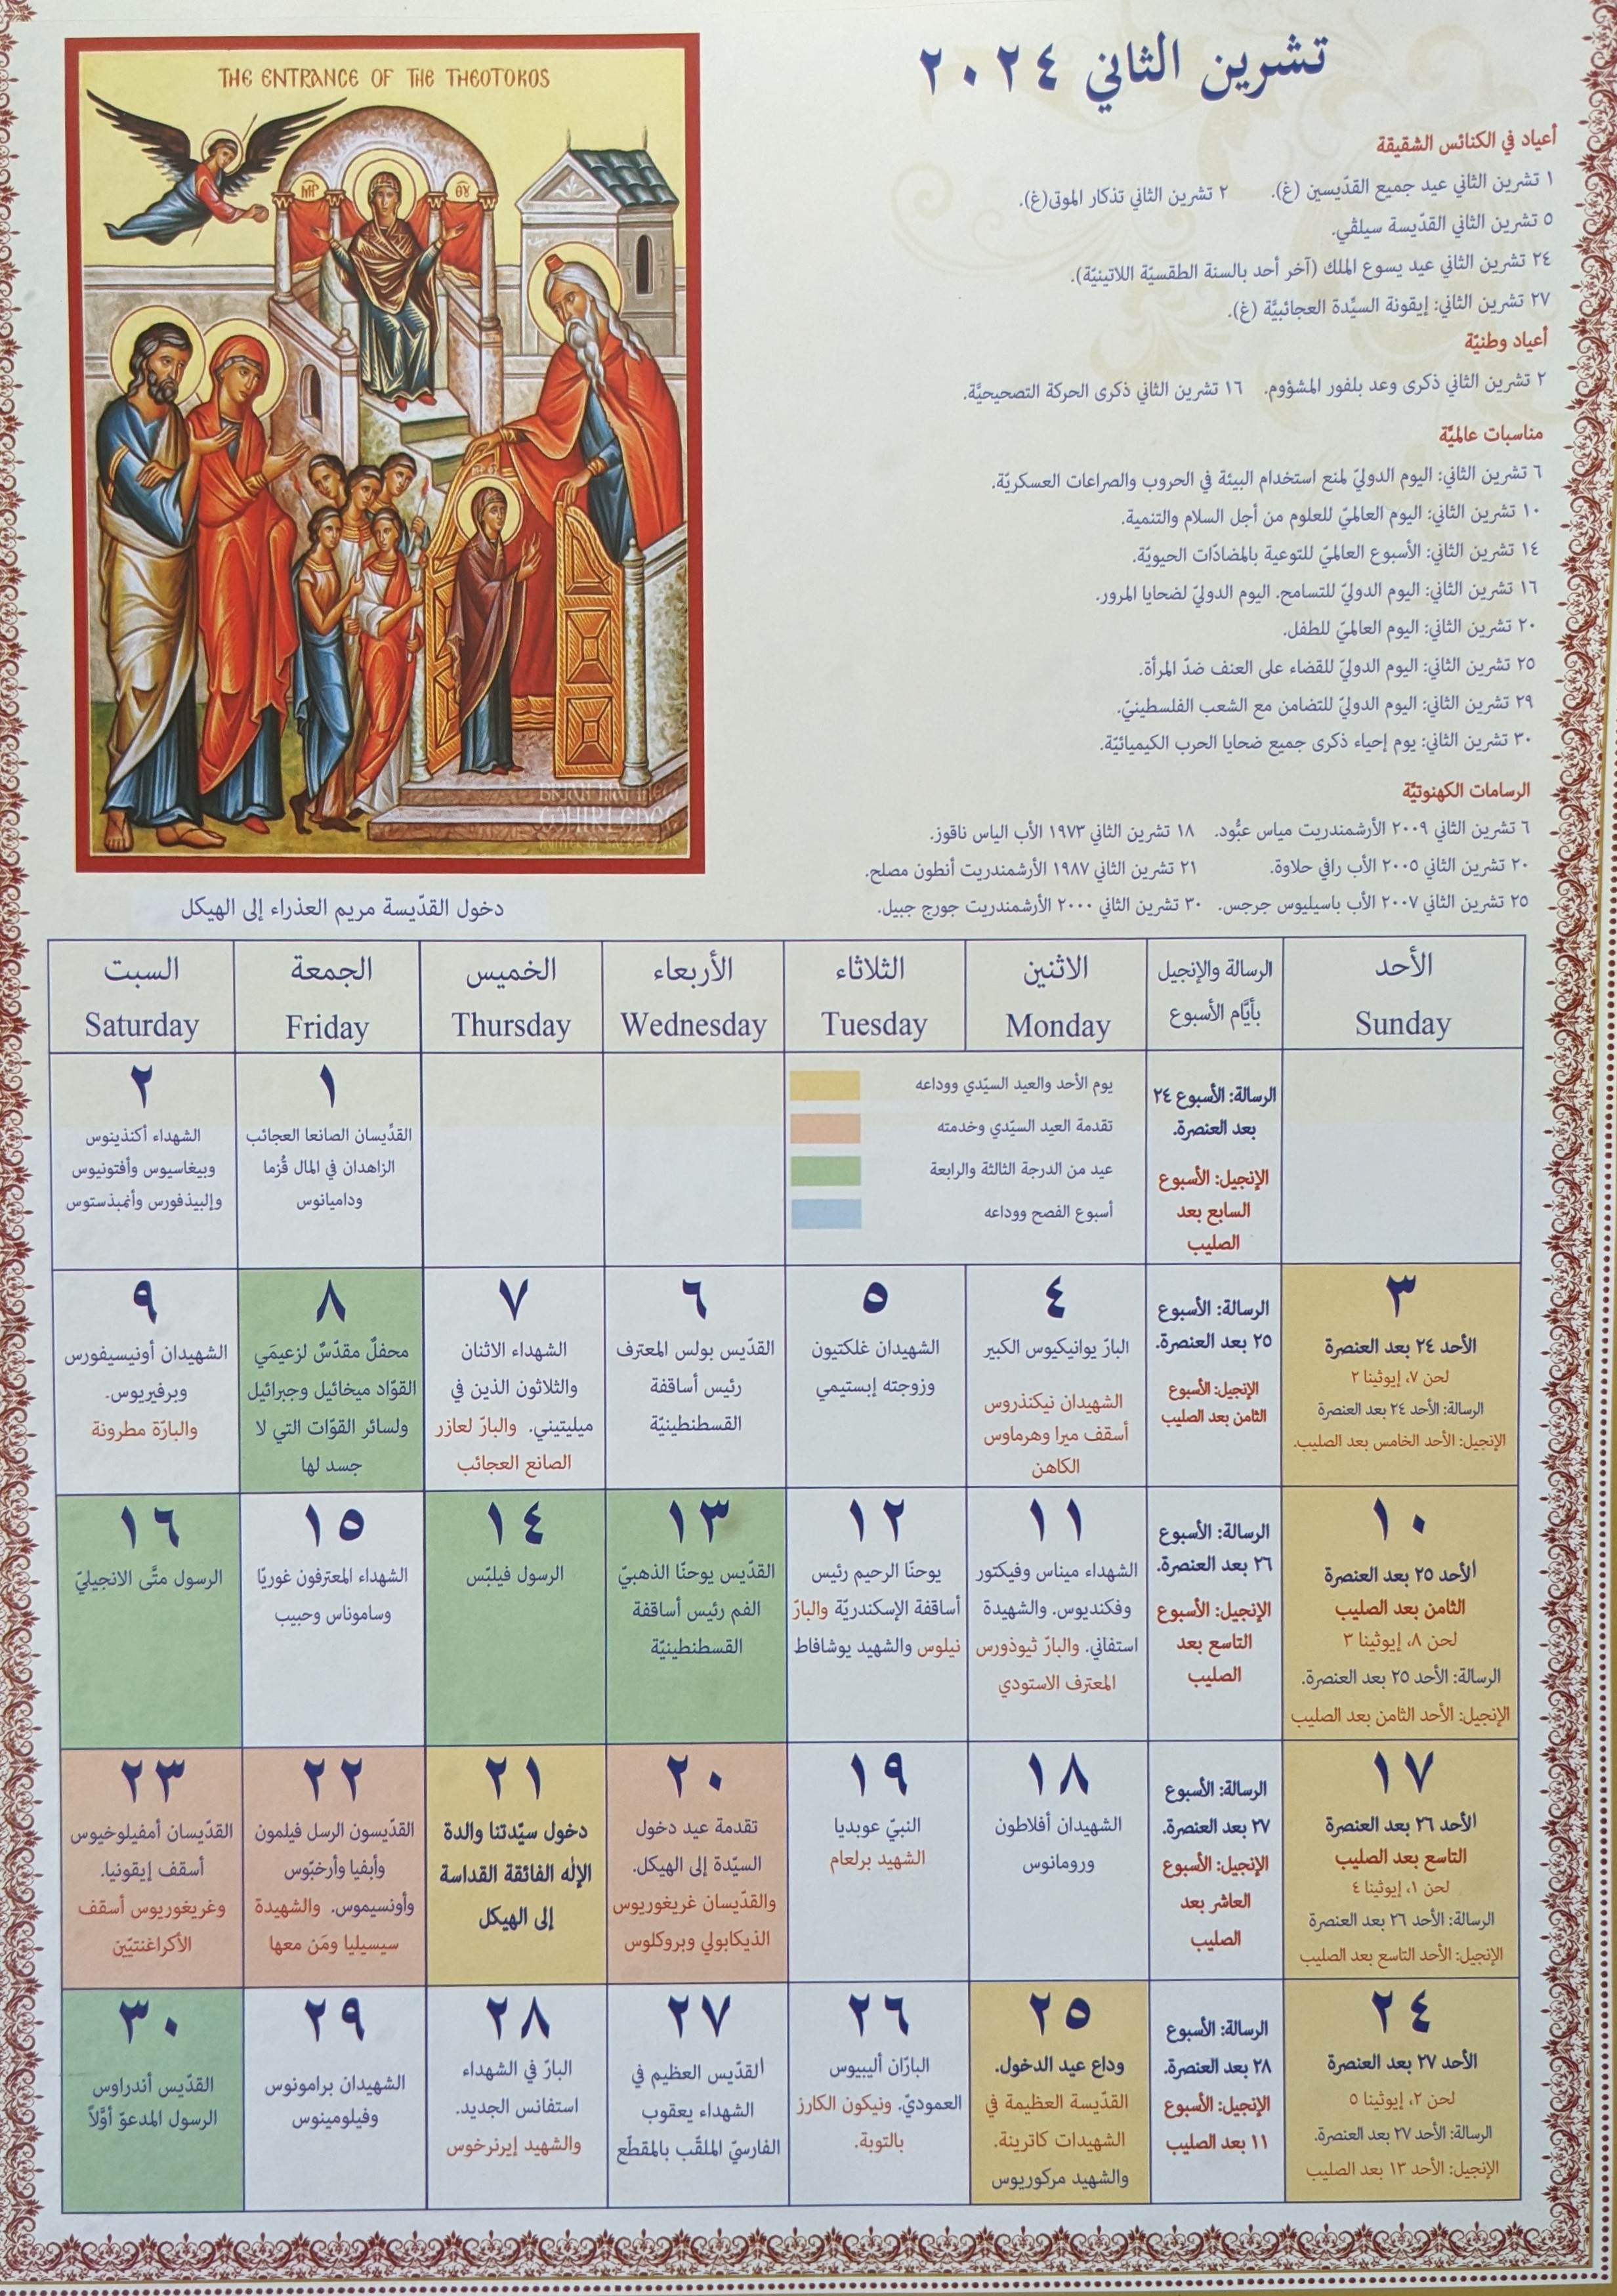 THE ENTRANCE OF THE THEOTOKOS
ΜΡ ΘΥ
دخول القدّيسة مريم العذراء إلى الهيكل
تشرين الثاني ٢٠٢٤
أعياد في الكنائس الشقيقة
١ تشرين الثاني عيد جميع القدّيسين (غ). ٢ تشرين الثاني تذكار الموتى(غ).
٥ تشرين الثاني القدّيسة سيلڤي.
٢٤ تشرين الثاني عيد يسوع الملك (آخر أحد بالسنة الطقسيّة اللاتينيّة).
٢٧ تشرين الثاني: إيقونة السيِّدة العجائبيَّة (غ).
أعياد وطنيّة
٢ تشرين الثاني ذكرى وعد بلفور المشؤوم. ١٦ تشرين الثاني ذكرى الحركة التصحيحيَّة.
مناسبات عالميَّة
٦ تشرين الثاني: اليوم الدوليّ لمنع استخدام البيئة في الحروب والصراعات العسكريّة.
١٠ تشرين الثاني: اليوم العالميّ للعلوم من أجل السلام والتنمية.
١٤ تشرين الثاني: الأسبوع العالميّ للتوعية بالمضادّات الحيويّة.
١٦ تشرين الثاني: اليوم الدوليّ للتسامح. اليوم الدوليّ لضحايا المرور.
٢٠ تشرين الثاني: اليوم العالميّ للطفل.
٢٥ تشرين الثاني: اليوم الدوليّ للقضاء على العنف ضدّ المرأة.
٢٩ تشرين الثاني: اليوم الدوليّ للتضامن مع الشعب الفلسطينيّ.
٣٠ تشرين الثاني: يوم إحياء ذكرى جميع ضحايا الحرب الكيميائيّة.
الرسامات الكهنوتيَّة
٦ تشرين الثاني ٢٠٠٩ الأرشمندريت مياس عبُّود. ١٨ تشرين الثاني ١٩٧٣ الأب الياس ناقوز.
٢٠ تشرين الثاني ٢٠٠٥ الأب رافي حلاوة. ٢١ تشرين الثاني ١٩٨٧ الأرشمندريت أنطون مصلح.
٢٥ تشرين الثاني ٢٠٠٧ الأب باسيليوس جرجس. ٣٠ تشرين الثاني ٢٠٠٠ الأرشمندريت جورج جبيل.
الأحد
Sunday
الرسالة والإنجيل
بأيَّام الأسبوع
الاثنين
Monday
الثلاثاء
Tuesday
الأربعاء
Wednesday
الخميس
Thursday
الجمعة
Friday
السبت
Saturday
الرسالة: الأسبوع ٢٤
بعد العنصرة.
الإنجيل: الأسبوع
السابع بعد
الصليب
يوم الأحد والعيد السيّدي ووداعه
تقدمة العيد السيّدي وخدمته
عيد من الدرجة الثالثة والرابعة
أسبوع الفصح ووداعه
١
القدِّيسان الصانعا العجائب
الزاهدان في المال قُزما
وداميانوس
٢
الشهداء أكنذينوس
وبيغاسيوس وأفتونيوس
وإلبيذفورس وأنمبذستوس
٣
الأحد ٢٤ بعد العنصرة
لحن ٧، إيوثينا ٢
الرسالة: الأحد ٢٤ بعد العنصرة
الإنجيل: الأحد الخامس بعد الصليب.
الرسالة: الأسبوع
٢٥ بعد العنصرة.
الإنجيل: الأسبوع
الثامن بعد الصليب
٤
البارّ يوانيكيوس الكبير
الشهيدان نيكنذروس
أسقف ميرا وهرماوس
الكاهن
٥
الشهيدان غلكتيون
وزوجته إبستيمي
٦
القدّيس بولس المعترف
رئيس أساقفة
القسطنطينيّة
٧
الشهداء الاثنان
والثلاثون الذين في
ميليتيني. والبارّ لعازر
الصانع العجائب
٨
محفلٌ مقدّسٌ لزعيمَي
القوّاد ميخائيل وجبرائيل
ولسائر القوّات التي لا
جسد لها
٩
الشهيدان أونيسيفورس
وبرفيريوس.
والبارّة مطرونة
١٠
الأحد ٢٥ بعد العنصرة
الثامن بعد الصليب
لحن ٨، إيوثينا ٣
الرسالة: الأحد ٢٥ بعد العنصرة.
الإنجيل: الأحد الثامن بعد الصليب
الرسالة: الأسبوع
٢٦ بعد العنصرة.
الإنجيل: الأسبوع
التاسع بعد
الصليب
١١
الشهداء ميناس وفيكتور
وفكنديوس. والشهيدة
استفاني. والبارّ ثيوذورس
المعترف الاستودي
١٢
يوحنّا الرحيم رئيس
أساقفة الإسكندريّة والبارّ
نيلوس والشهيد يوشافاط
١٣
القدّيس يوحنّا الذهبيّ
الفم رئيس أساقفة
القسطنطينيّة
١٤
الرسول فيلبّس
١٥
الشهداء المعترفون غوريّا
وساموناس وحبيب
١٦
الرسول متَّى الانجيليّ
١٧
الأحد ٢٦ بعد العنصرة
التاسع بعد الصليب
لحن ١، إيوثينا ٤
الرسالة: الأحد ٢٦ بعد العنصرة
الإنجيل: الأحد التاسع بعد الصليب
الرسالة: الأسبوع
٢٧ بعد العنصرة.
الإنجيل: الأسبوع
العاشر بعد
الصليب
١٨
الشهيدان أفلاطون
ورومانوس
١٩
النبيّ عوبديا
الشهيد برلعام
٢٠
تقدمة عيد دخول
السيّدة إلى الهيكل.
والقدّيسان غريغوريوس
الذيكابولي وبروكلوس
٢١
دخول سيّدتنا والدة
الإله الفائقة القداسة
إلى الهيكل
٢٢
القدّيسون الرسل فيلمون
وأبفيا وأرخبّوس
وأونسيموس. والشهيدة
سيسيليا ومَن معها
٢٣
القدّيسان أمفيلوخيوس
أسقف إيقونيا.
وغريغوريوس أسقف
الأكراغنتيّين
٢٤
الأحد ٢٧ بعد العنصرة
لحن ٢، إيوثينا ٥
الرسالة: الأحد ٢٧ بعد العنصرة.
الإنجيل: الأحد ١٣ بعد الصليب
الرسالة: الأسبوع
٢٨ بعد العنصرة.
الإنجيل: الأسبوع
١١ بعد الصليب
٢٥
وداع عيد الدخول.
القدّيسة العظيمة في
الشهيدات كاترينة.
والشهيد مركوريوس
٢٦
البارّان أليبيوس
العموديّ. ونيكون الكارز
بالتوبة.
٢٧
القدّيس العظيم في
الشهداء يعقوب
الفارسيّ الملقّب بالمقطّع
٢٨
البارّ في الشهداء
استفانس الجديد.
والشهيد إيرنرخوس
٢٩
الشهيدان برامونوس
وفيلومينوس
٣٠
القدّيس أندراوس
الرسول المدعوّ أوّلاً